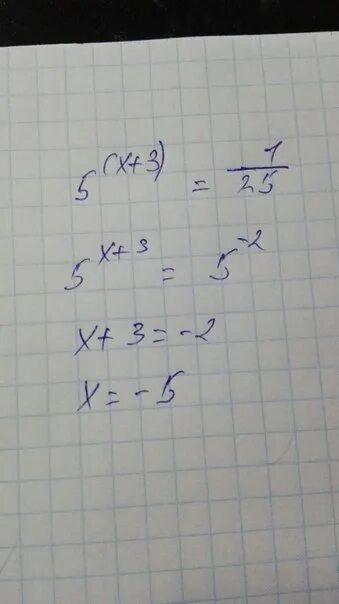 5^(x+3) = 1/25
5^x+3 = 5^-2
x+3=-2
x=-5